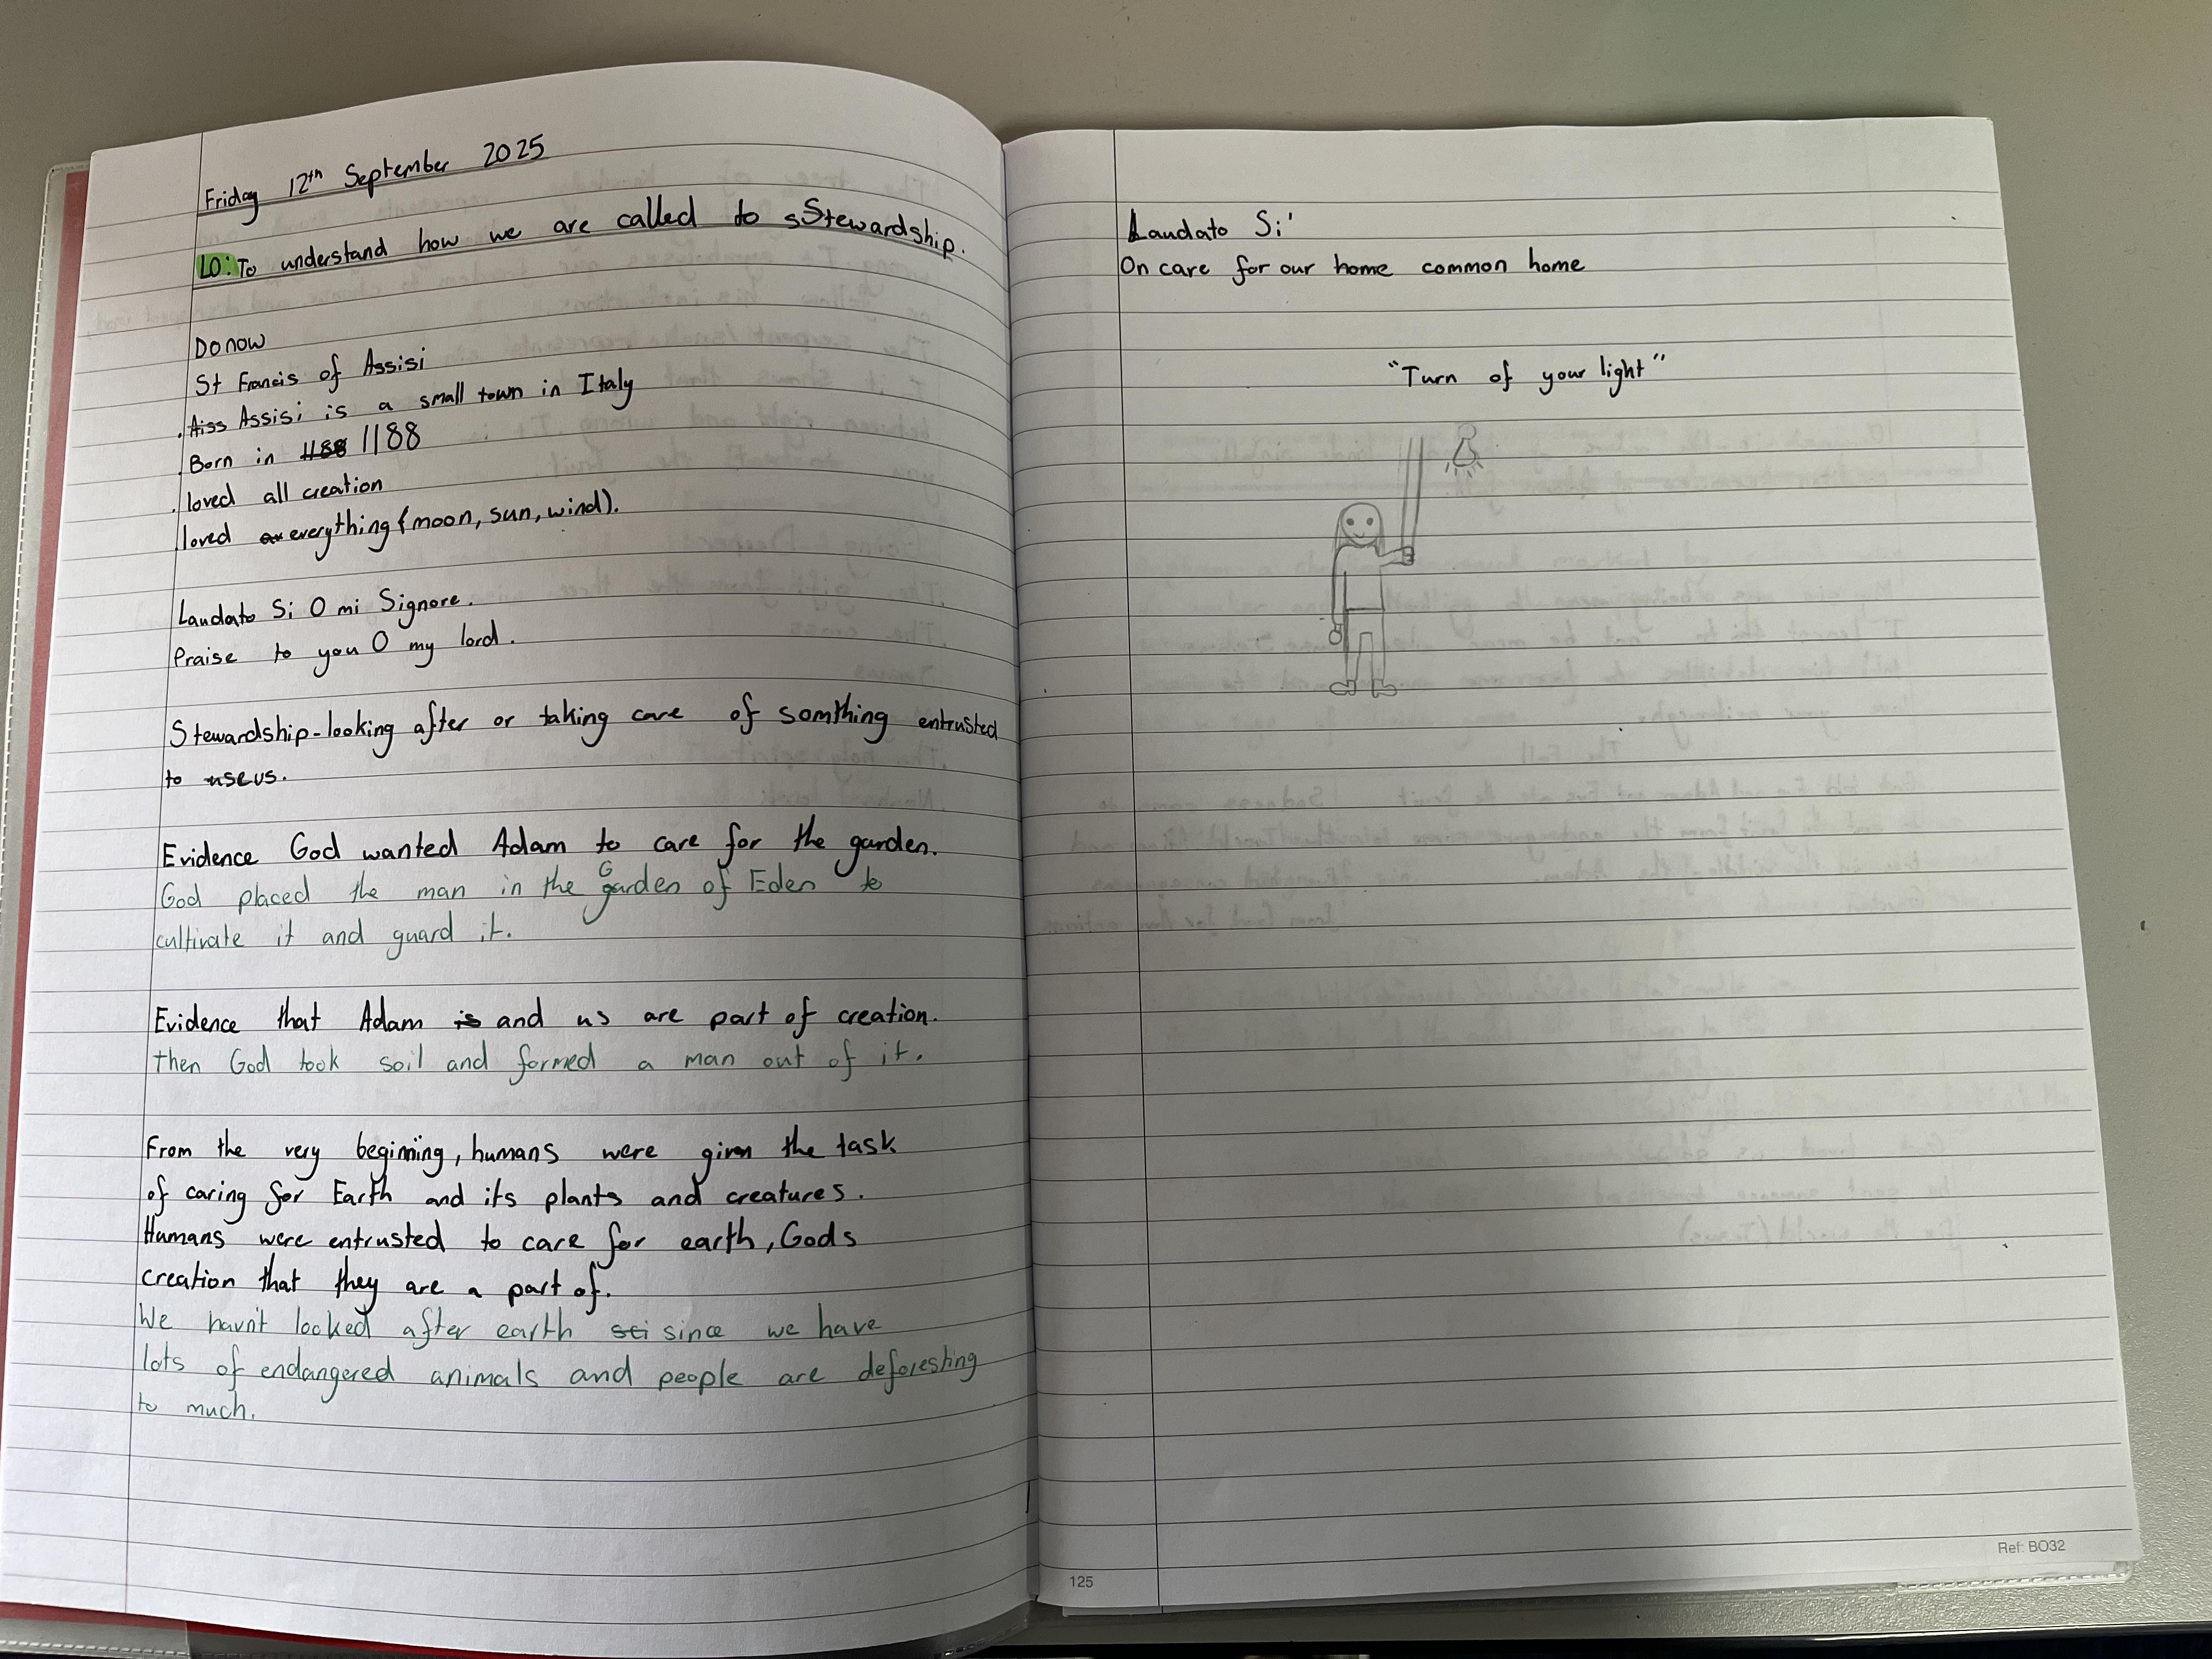 Friday 12th September 2025
LO: To understand how we are called to sStewardship.
Do now
St Francis of Assisi
. Aiss Assisi is a small town in Italy
. Born in 1188 1188
. loved all creation
. loved everything (moon, sun, wind).
Laudato Si O mi Signore.
Praise to you O my lord.
Stewardship - looking after or taking care of somthing entrusted
to use us.
Evidence God wanted Adam to care for the garden.
God placed the man in the Garden of Eden to
cultivate it and guard it.
Evidence that Adam is and us are part of creation.
then God took soil and formed a man out of it.
From the very beginning, humans were given the task
of caring for Earth and its plants and creatures.
Humans were entrusted to care for earth, Gods
creation that they are a part of.
We havn't looked after earth sci since we have
lots of endangered animals and people are deforesting
to much.
Laudato Si'
On care for our home common home
"Turn of your light"
125
Ref: BO32